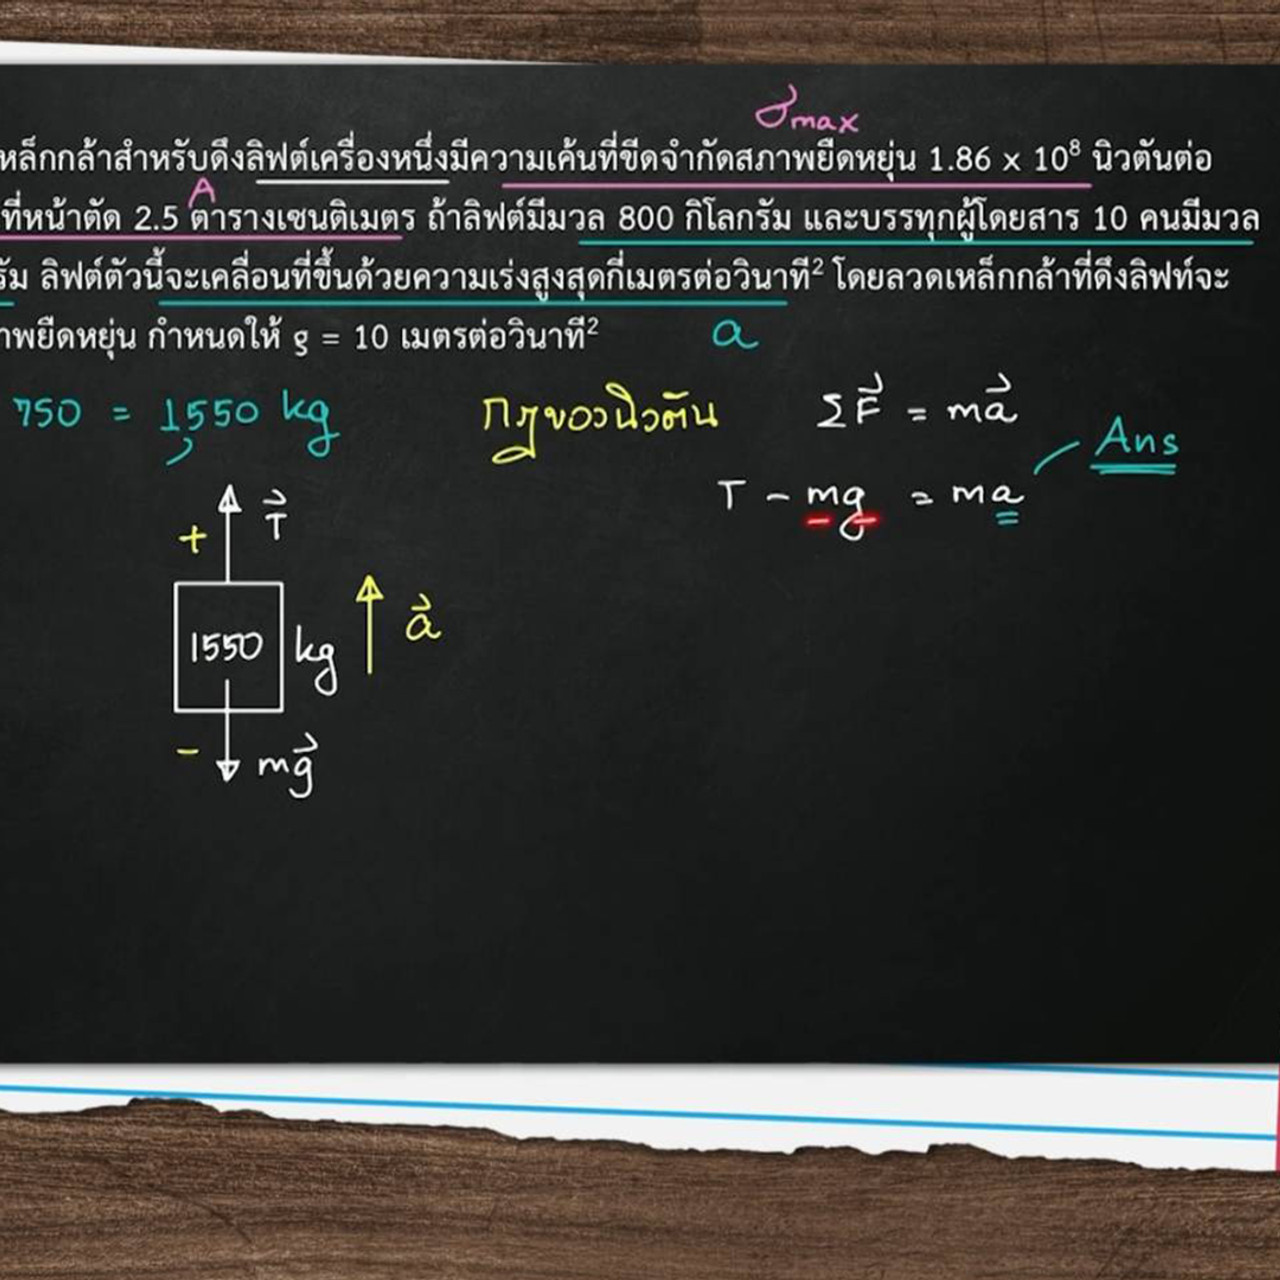 σmax
หล็กกล้าสำหรับดึงลิฟต์เครื่องหนึ่งมีความเค้นที่ขีดจำกัดสภาพยืดหยุ่น 1.86 x 10⁸ นิวตันต่อ
A
ที่หน้าตัด 2.5 ตารางเซนติเมตร ถ้าลิฟต์มีมวล 800 กิโลกรัม และบรรทุกผู้โดยสาร 10 คนมีมวล
รัม ลิฟต์ตัวนี้จะเคลื่อนที่ขึ้นด้วยความเร่งสูงสุดกี่เมตรต่อวินาที² โดยลวดเหล็กกล้าที่ดึงลิฟท์จะ
าพยืดหยุ่น กำหนดให้ g = 10 เมตรต่อวินาที² a
750 = 1,550 kg กฎของนิวตัน ΣF⃗ = ma⃗
Ans
T - mg = ma
+ T⃗
1550 kg a⃗
- mg⃗